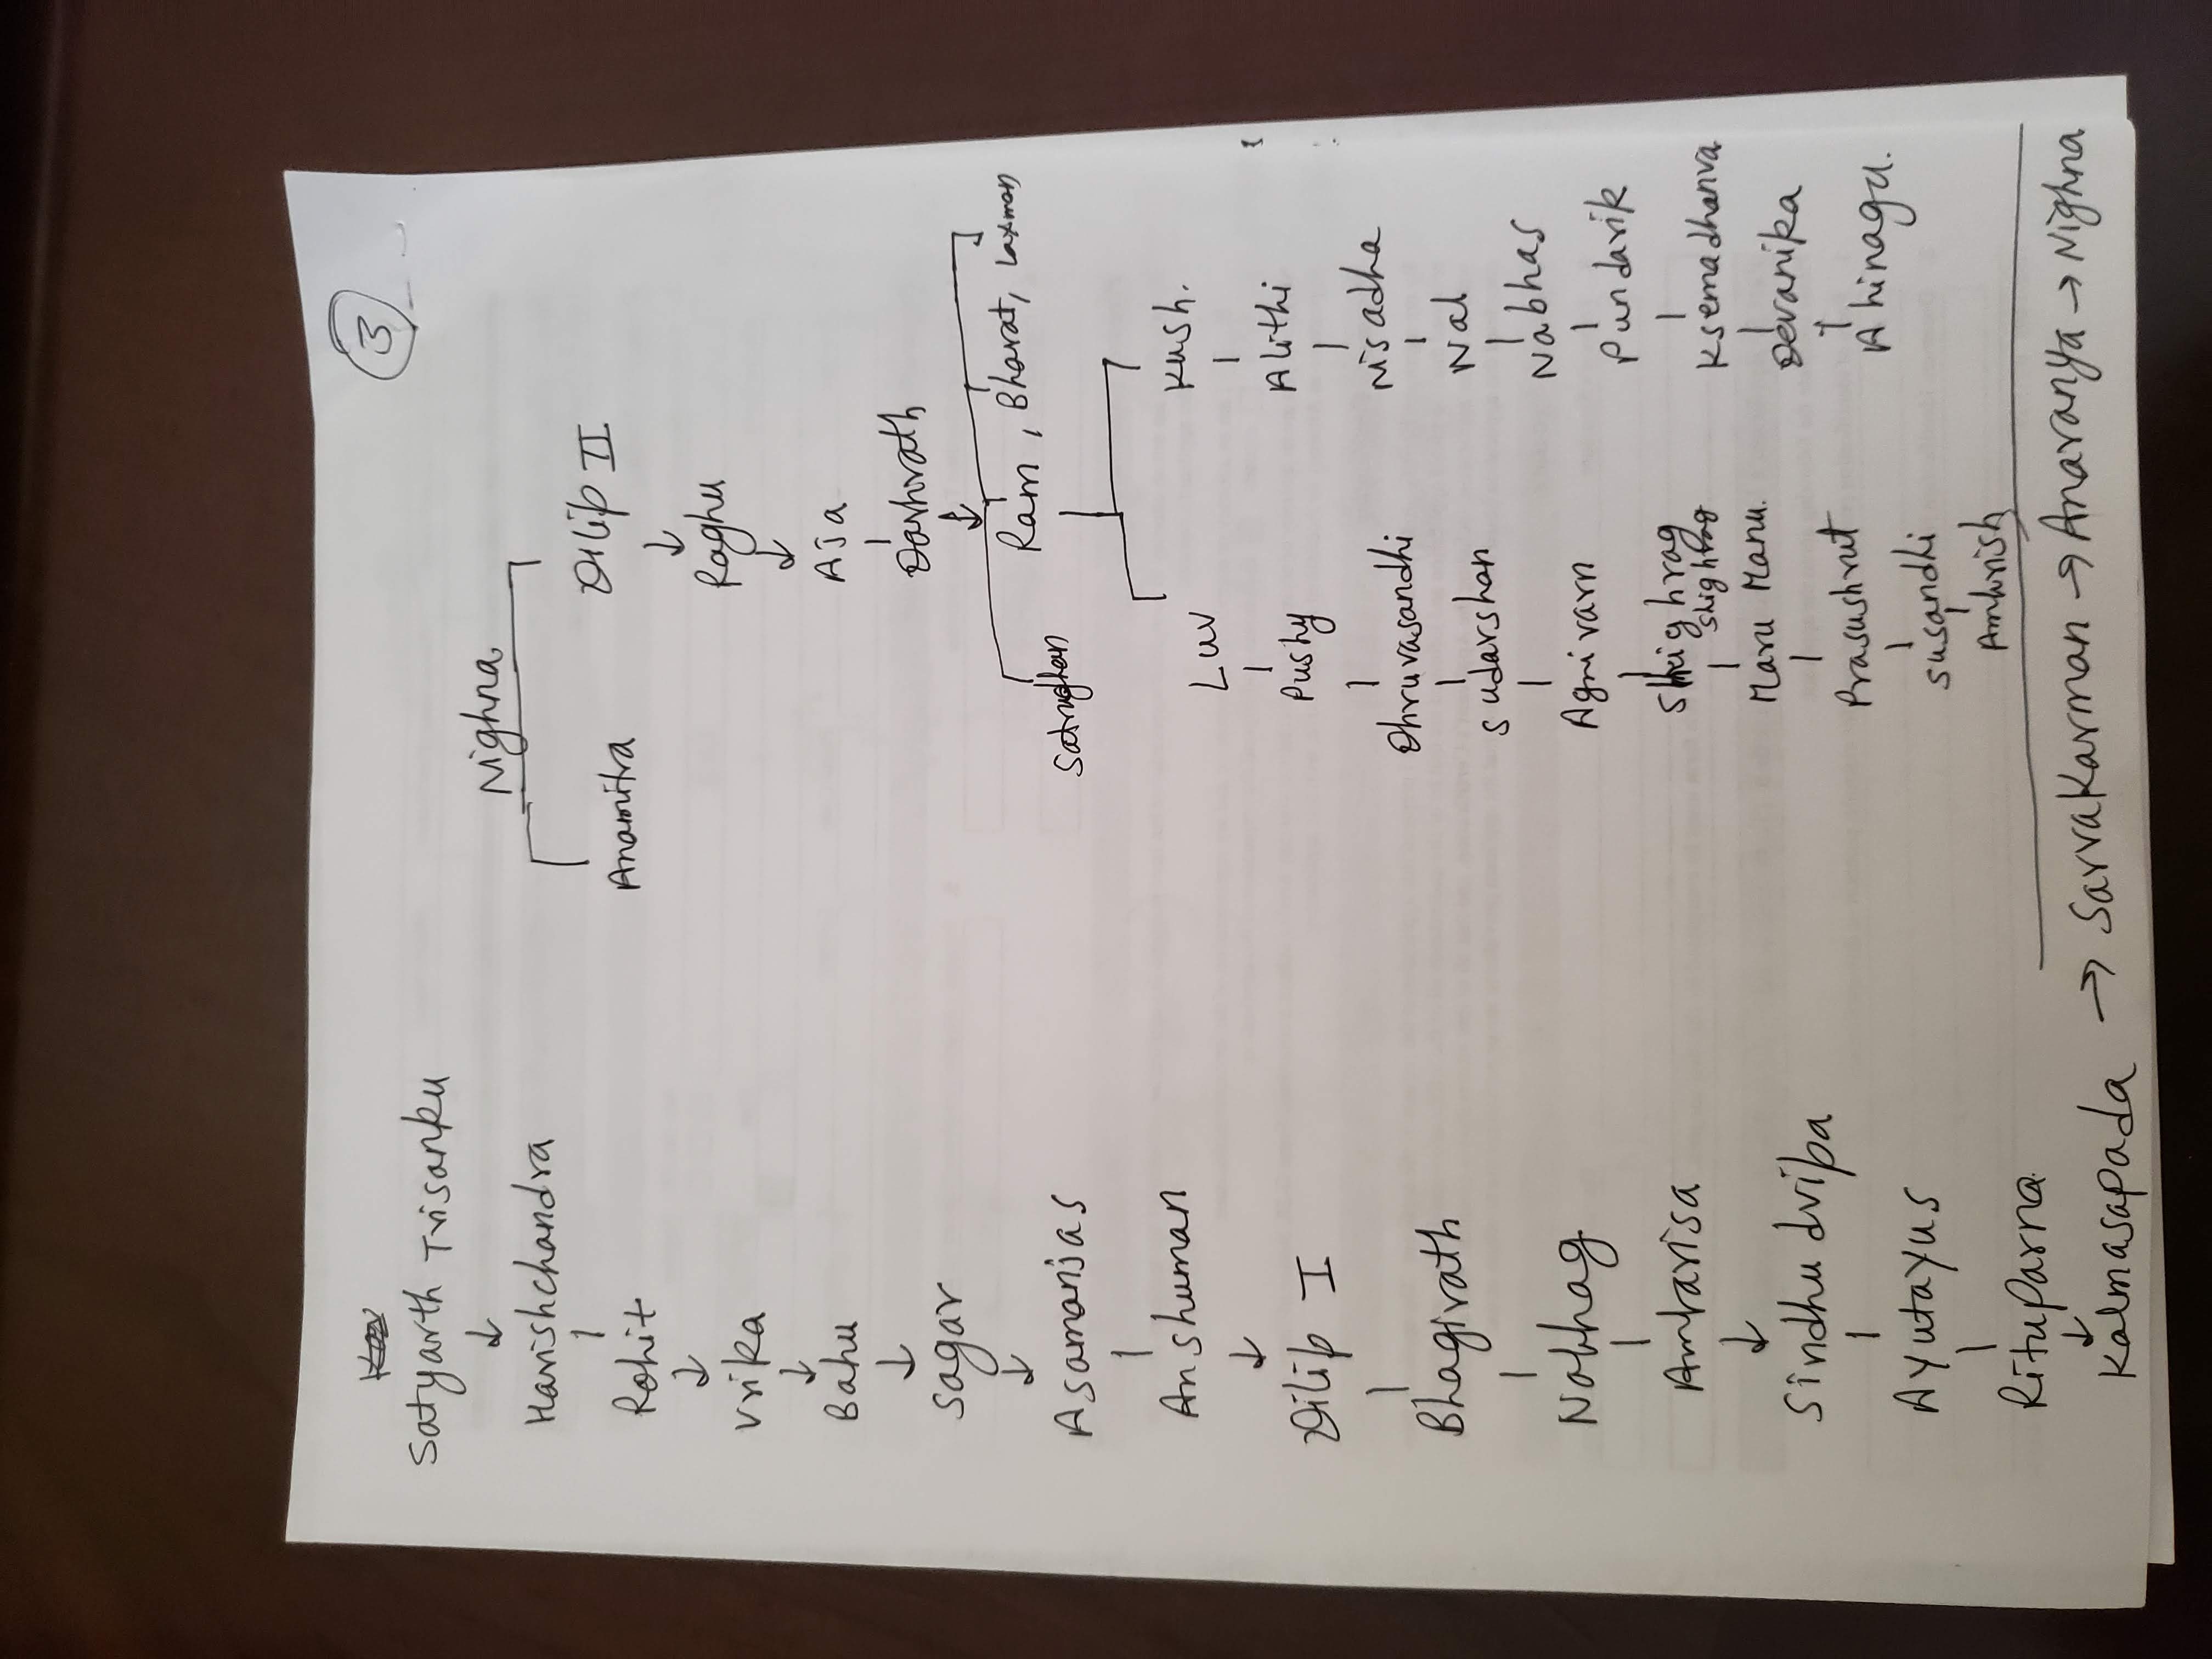 3
Satyarth Trisanku
Harishchandra
Rohit
Vrika
Bahu
Sagar
Asamanjas
Anshuman
Dilip I
Bhagirath
Nabhag
Ambarisa
Sindhu dvipa
Ayutayus
Rituparna
Kalmasapada → Sarvakarman → Anaranya → Nighna
Nighna
Anamitra Dilip II
Raghu
Aja
Dashrath
Ram, Bharat, Laxman
Satrughan
Luv Kush.
Pushy Alithi
Dhruvasandhi Nisadha
Sudarshan Nal
Agnivarn Nabhas
Shighrag Pundarik
Shighrag
Maru Manu. Ksemadhanva
Prasushrut Devanika
Susandhi Ahinagu.
Ambrish